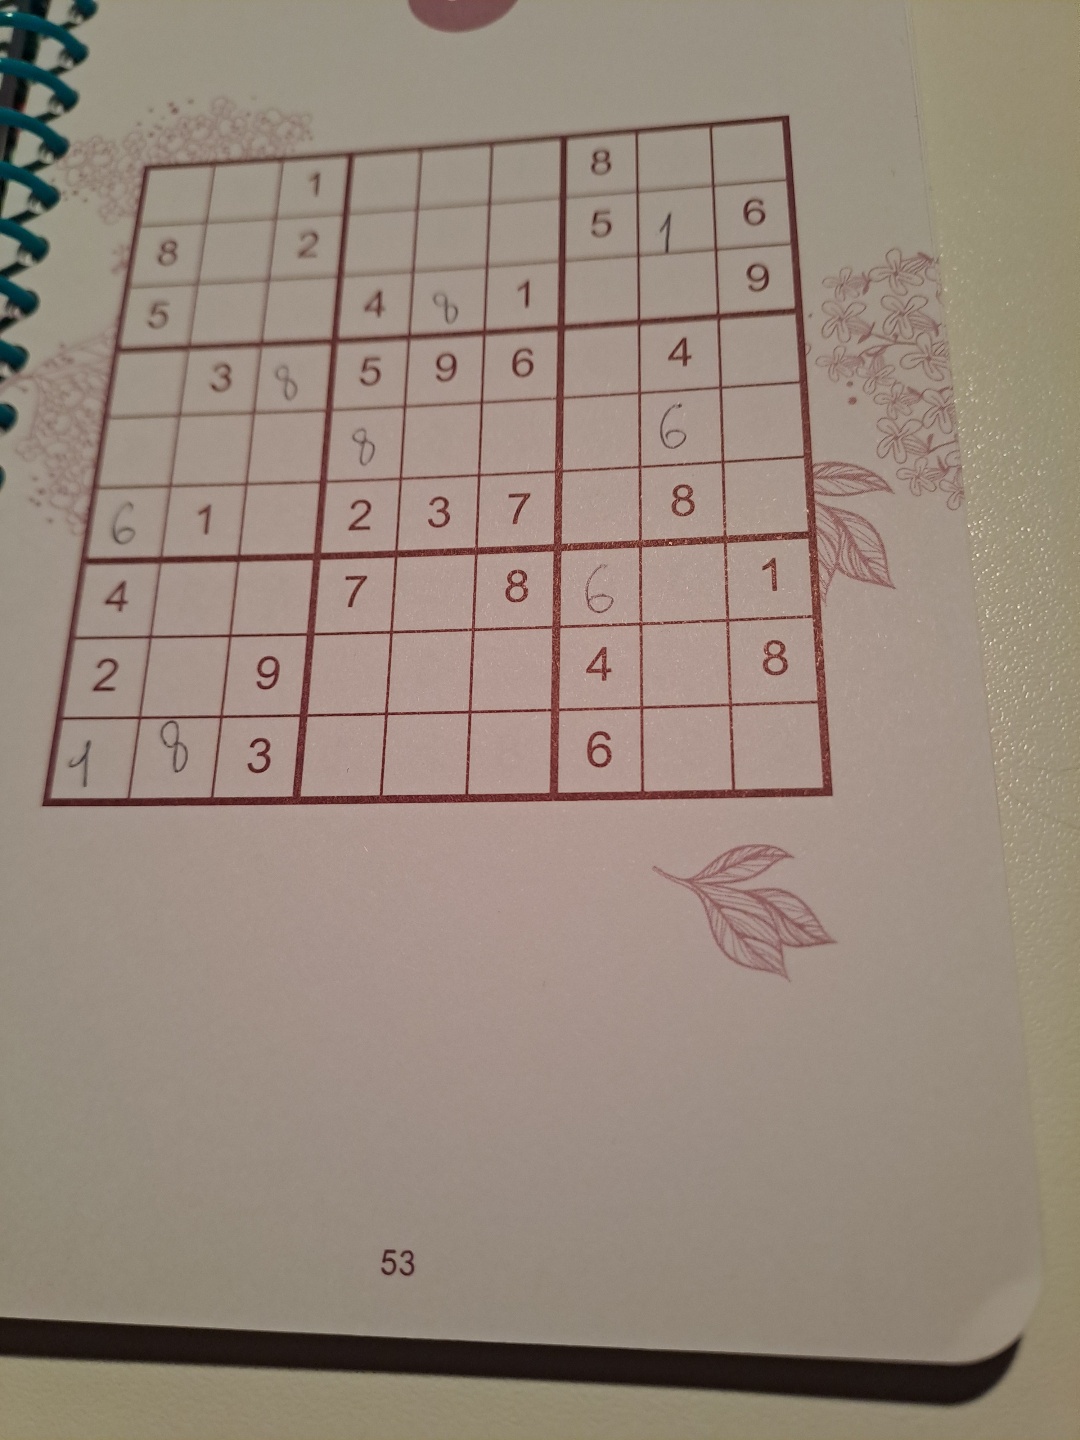 1 8
8 2 5 1 6
5 4 8 1 9
3 8 5 9 6 4
8 6
6 1 2 3 7 8
4 7 8 6 1
2 9 4 8
1 8 3 6
53